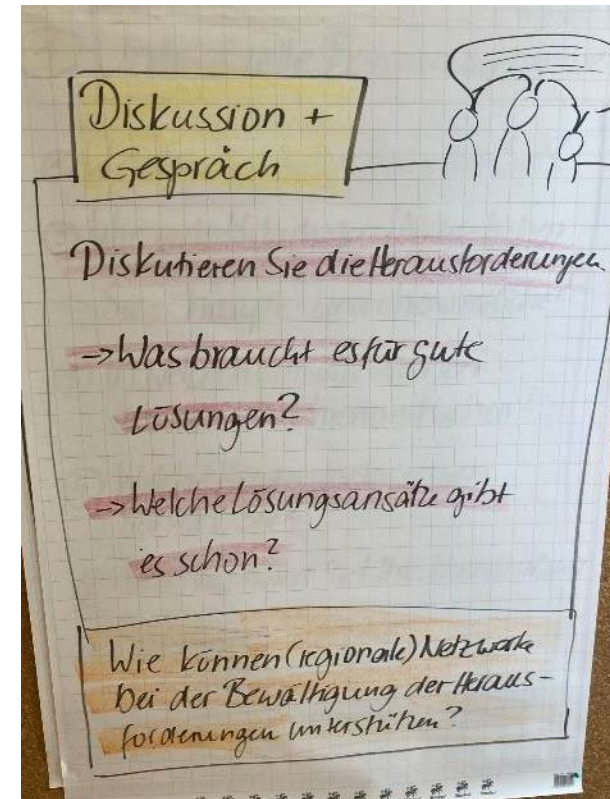 Diskussion +
Gespräch
Diskutieren Sie die Herausforderungen.
-> Was braucht es für gute
Lösungen?
-> Welche Lösungsansätze gibt
es schon?
Wie können (regionale) Netzwerke
bei der Bewältigung der Heraus-
forderungen unterstützen?